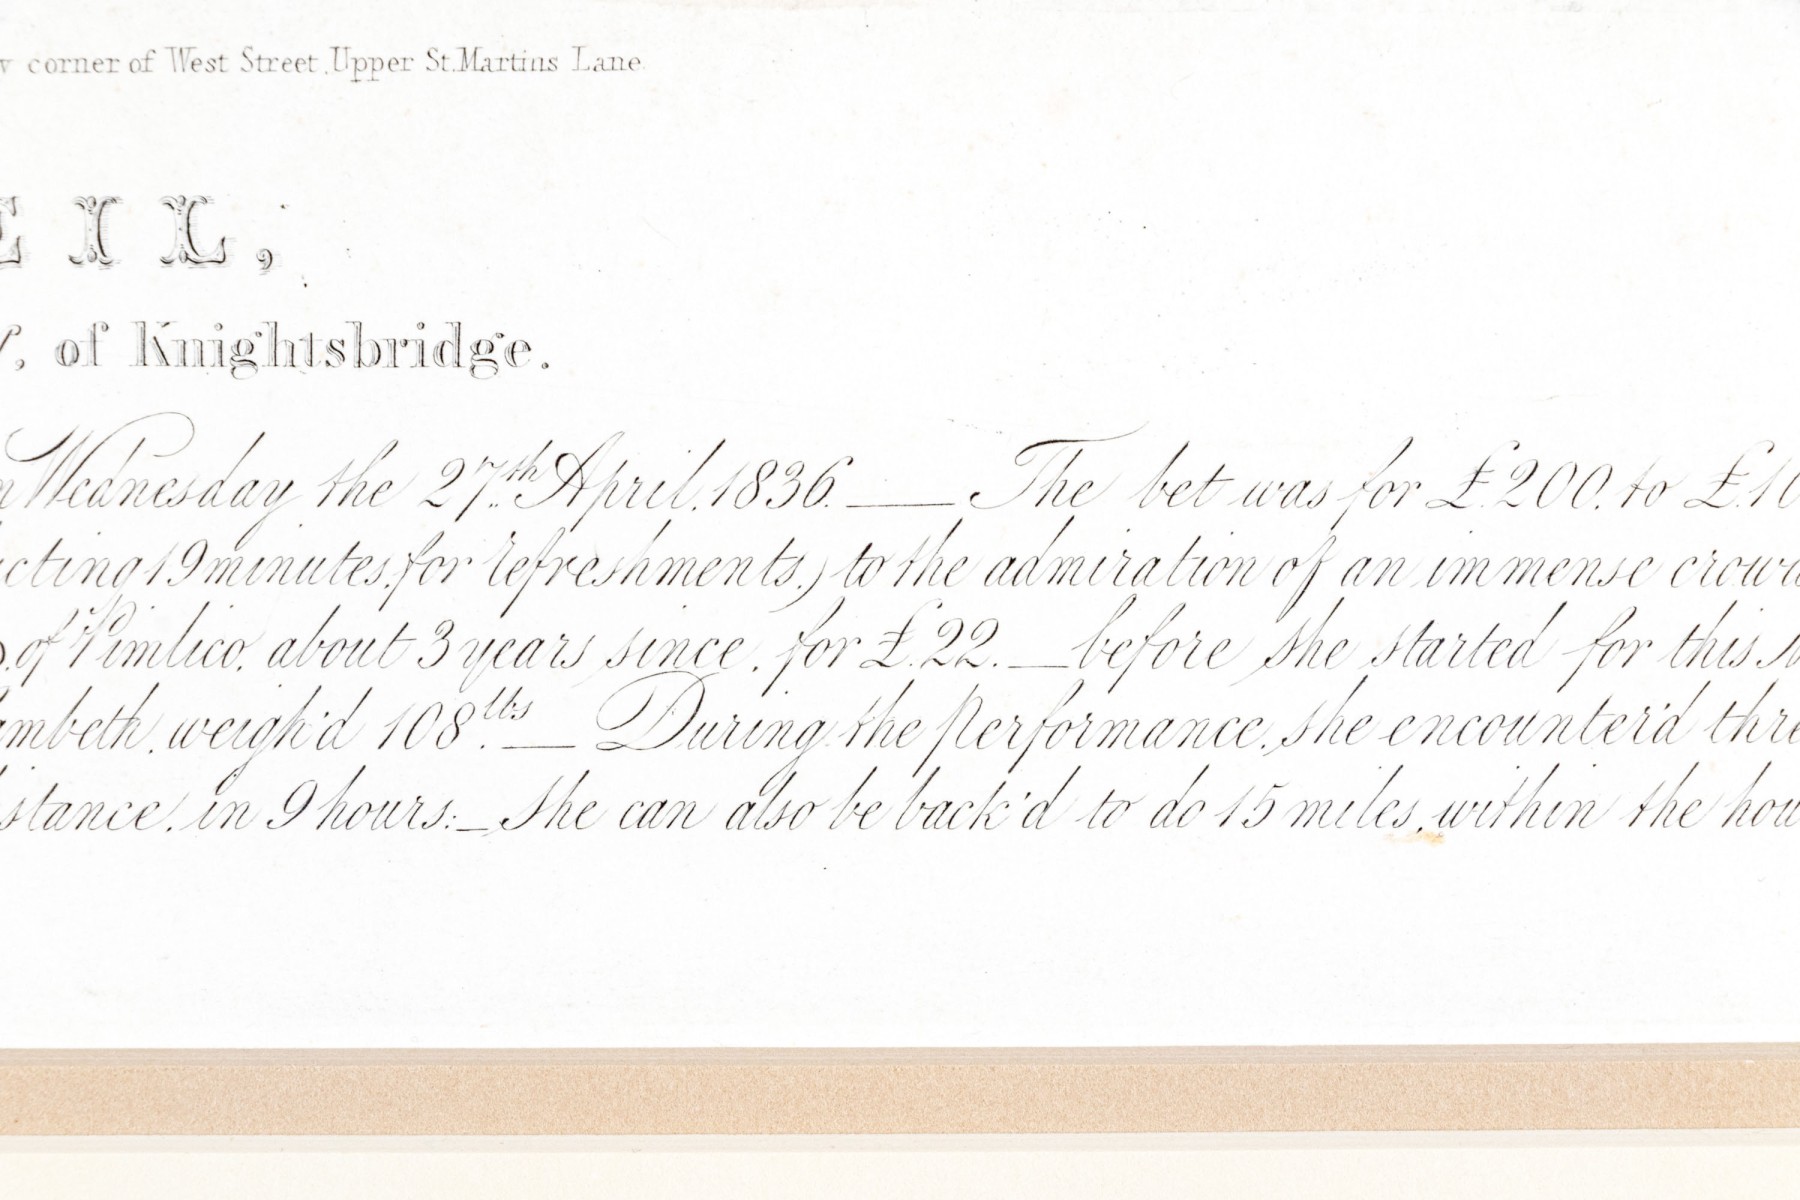 corner of West Street, Upper St. Martins Lane.
EIL,
of Knightsbridge.
Wednesday the 27th April, 1836. — The bet was for £200. to £10
cting 19 minutes, for refreshments,) to the admiration of an immense crow
of Pimlico, about 3 years since, for £.22. — before she started for this
ambeth, weigh'd 108 lbs. — During the performance, she encounter'd thre
istance, in 9 hours:— She can also be back'd to do 15 miles, within the hou